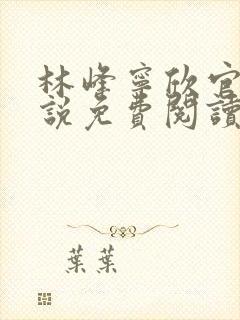 林峰寧欣官
說免費閱讀
葉葉